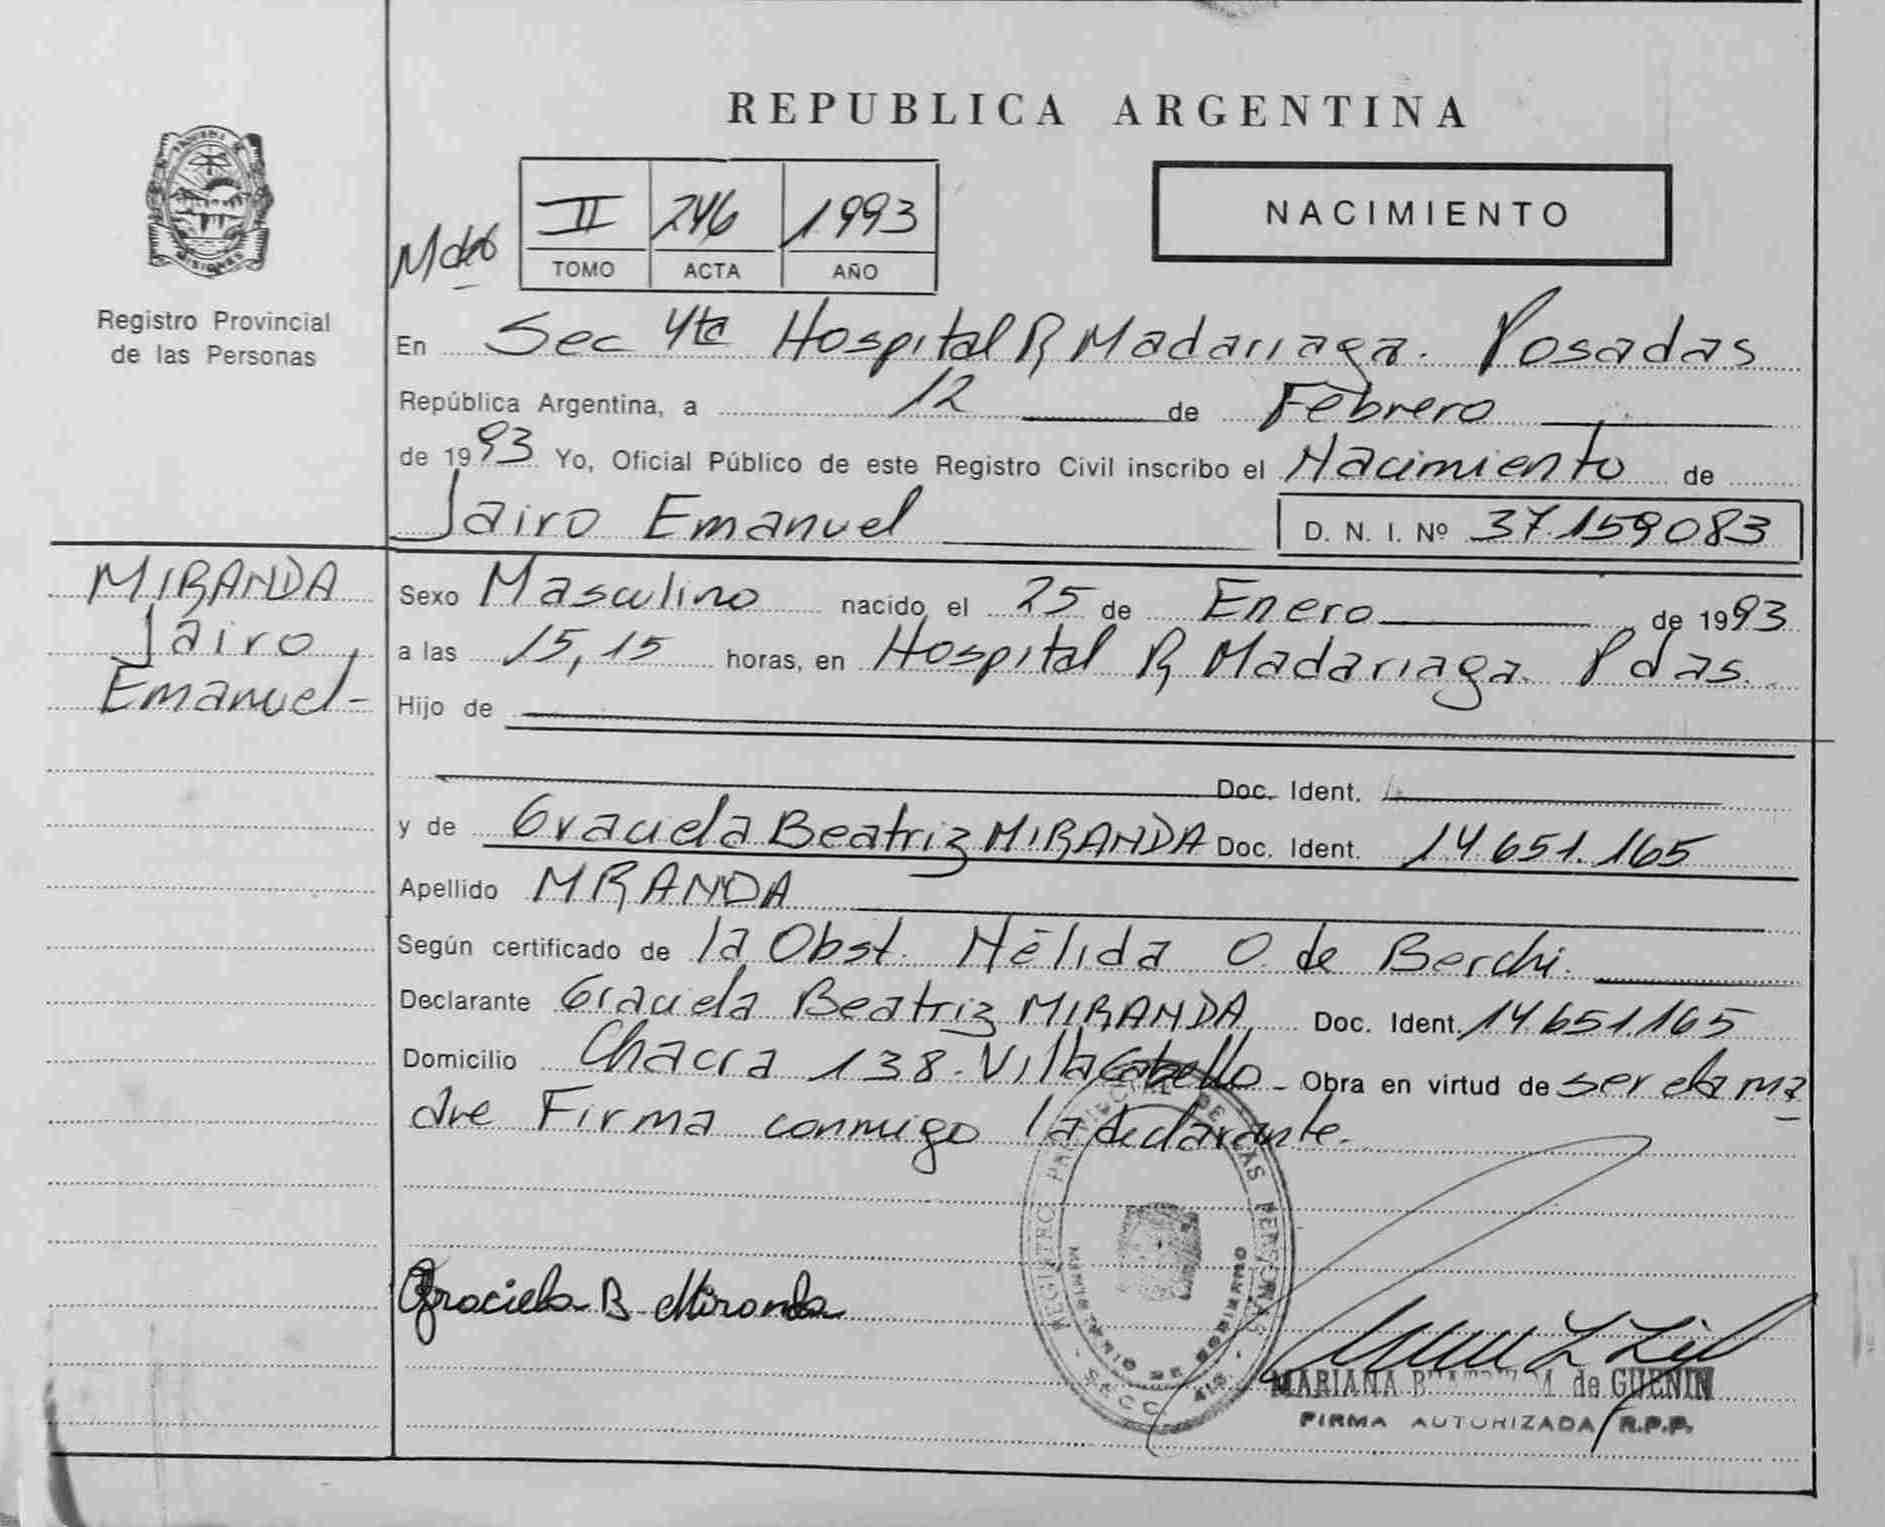 REPUBLICA ARGENTINA
NACIMIENTO
II 246 1993
TOMO ACTA AÑO
Registro Provincial
de las Personas
En Sec 4ta Hospital R Madariaga. Posadas
República Argentina, a 12 de Febrero
de 1993 Yo, Oficial Público de este Registro Civil inscribo el Nacimiento de
Jairo Emanuel D. N. I. Nº 37.159083
MIRANDA
Jairo
Emanuel-
Sexo Masculino nacido el 25 de Enero de 1993
a las 15,15 horas, en Hospital R Madariaga. Pdas.
Hijo de
Doc. Ident.
y de Graciela Beatriz MIRANDA Doc. Ident. 14.651.165
Apellido MIRANDA
Según certificado de la Obst. Nélida O. de Berchi.
Declarante Graciela Beatriz MIRANDA Doc. Ident. 14.651.165
Domicilio Chacra 138-Villa Cabello- Obra en virtud de ser ela ma
dre Firma conmigo la declarante.
Graciela B Miranda
REGISTRO PROVINCIAL DE LAS PERSONAS
MINISTERIO DE GOBIERNO
MARIANA de GUENIN
FIRMA AUTORIZADA R.P.P.